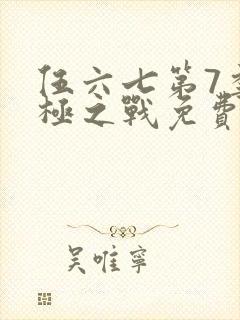 伍六七第7季
極之戰免費
吴唯寧